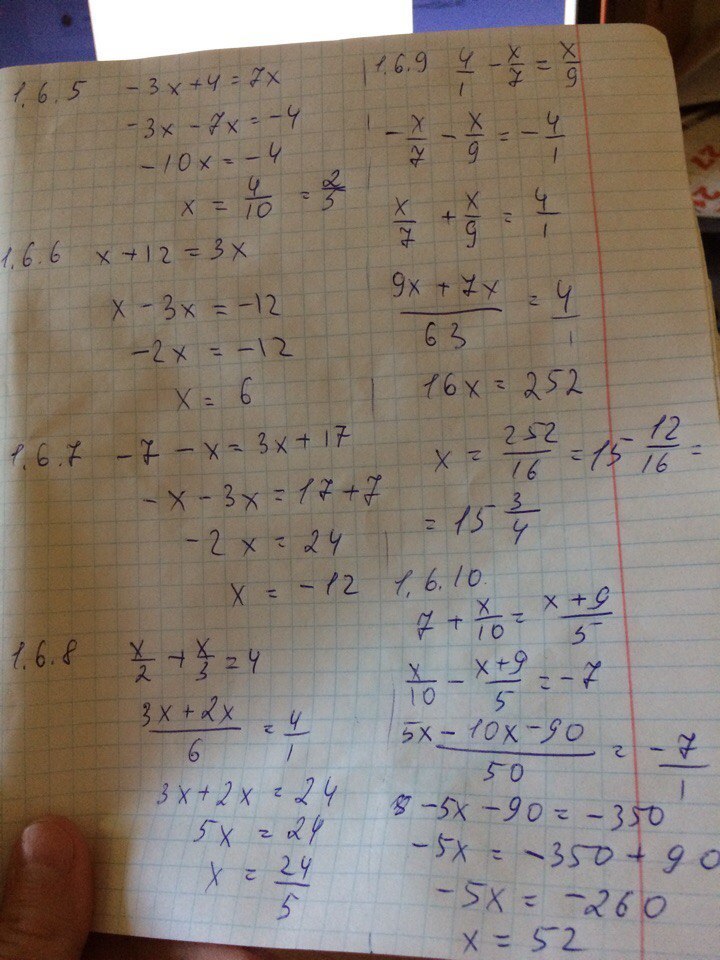 1.6.5 -3x+4=7x
-3x-7x=-4
-10x=-4
x = 4/10 = 2/5
1.6.6 x+12=3x
x-3x=-12
-2x=-12
x=6
1.6.7 -7-x=3x+17
-x-3x=17+7
-2x=24
x=-12
1.6.8 x/2+x/3=4
(3x+2x)/6=4/1
3x+2x=24
5x=24
x=24/5
1.6.9 4/1-x/7=x/9
-x/7-x/9=-4/1
x/7+x/9=4/1
(9x+7x)/63=4/1
16x=252
x=252/16=15 12/16=
=15 3/4
1.6.10.
7+x/10=(x+9)/5
x/10-(x+9)/5=-7
(5x-10x-90)/50=-7/1
-5x-90=-350
-5x=-350+90
-5x=-260
x=52